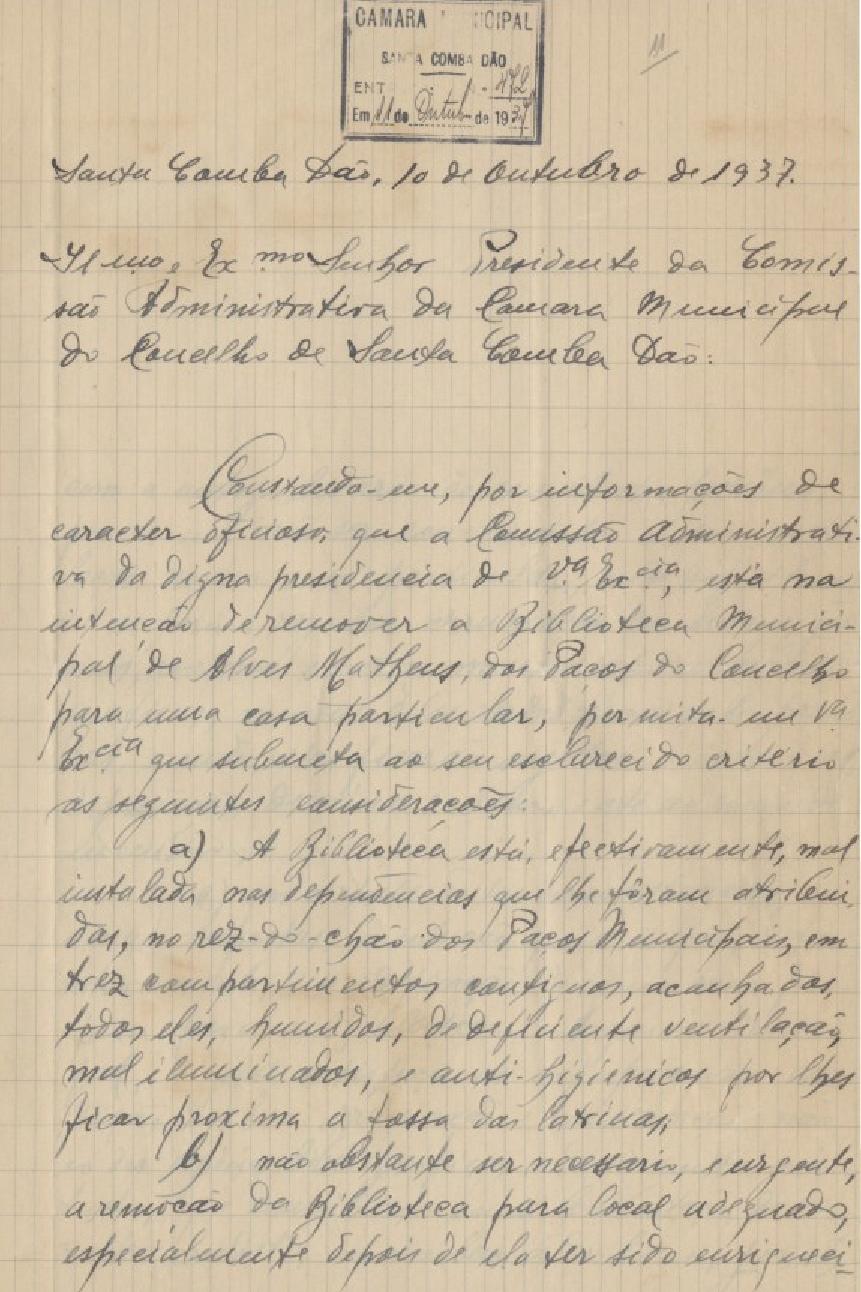 CAMARA MUNICIPAL
SANTA COMBA DÃO
ENT - 472
Em 11 de Outub- de 1937
11
Santa Comba Dão, 10 de Outubro de 1937.
Ilmo. Exmo Senhor Presidente da Comis-
são Administrativa da Camara Municipal
do Concelho de Santa Comba Dão:
Constando-me, por informações de
caracter oficioso, que a Comissão Administrati-
va da digna presidencia de V.ª Ex.cia, está na
intenção de remover a Biblioteca Munici-
pal de Alves Matheus, dos Paços do Concelho
para uma casa particular, permita-me Vª
Ex.cia que submeta ao seu esclarecido criterio
as seguintes considerações:
a) A Biblioteca está, efectivamente, mal
instalada nas dependências que lhe fôram atribui-
das, no rez-do-chão dos Paços Municipais, em
trez compartimentos contiguos, acanhados,
todos eles, humidos, de deficiente ventilação,
mal iluminados, e anti-higienicos por lhes
ficar proxima a fossa das latrinas,
b) não obstante ser necessario, e urgente,
a remoção da Biblioteca para local adequado,
especialmente depois de ela ter sido enriqueci-